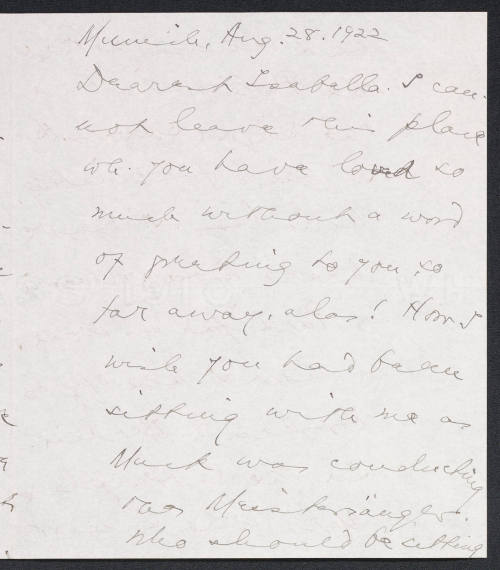 Munich, Aug. 28. 1922
Dearest Isabella. I can-
not leave this place
wh. you have loved so
much without a word
of greeting to you, so
far away, alas! How I
wish you had been
sitting with me as
Muck was conducting
Meistersänger.
Who should be sitting